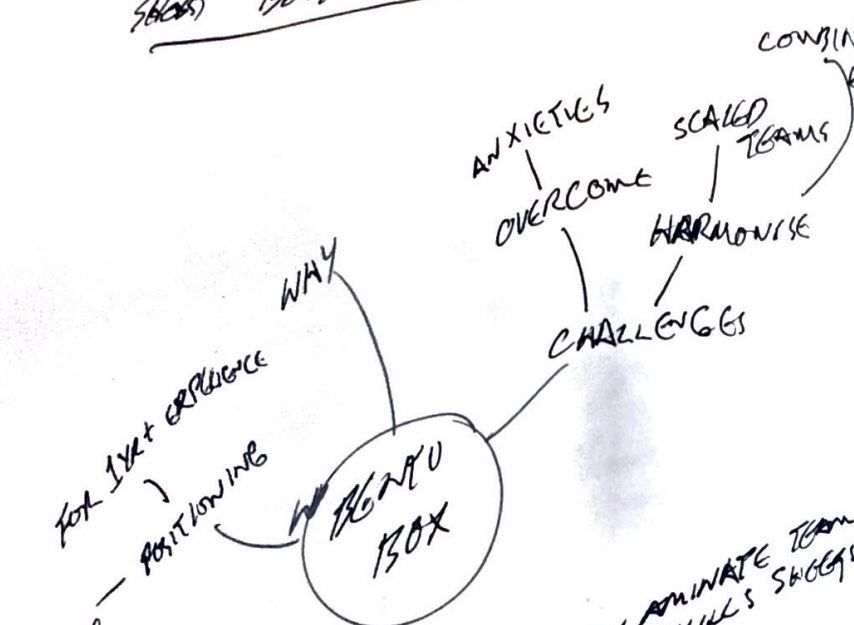 COMBIN
ANXIETIES
SCALED
TEAMS
OVERCOME
HARMONISE
WHY
CHALLENGES
FOR 1YR+ EXPERIENCE
POSITIONING
BENTO
BOX
LAMINATE TEAM